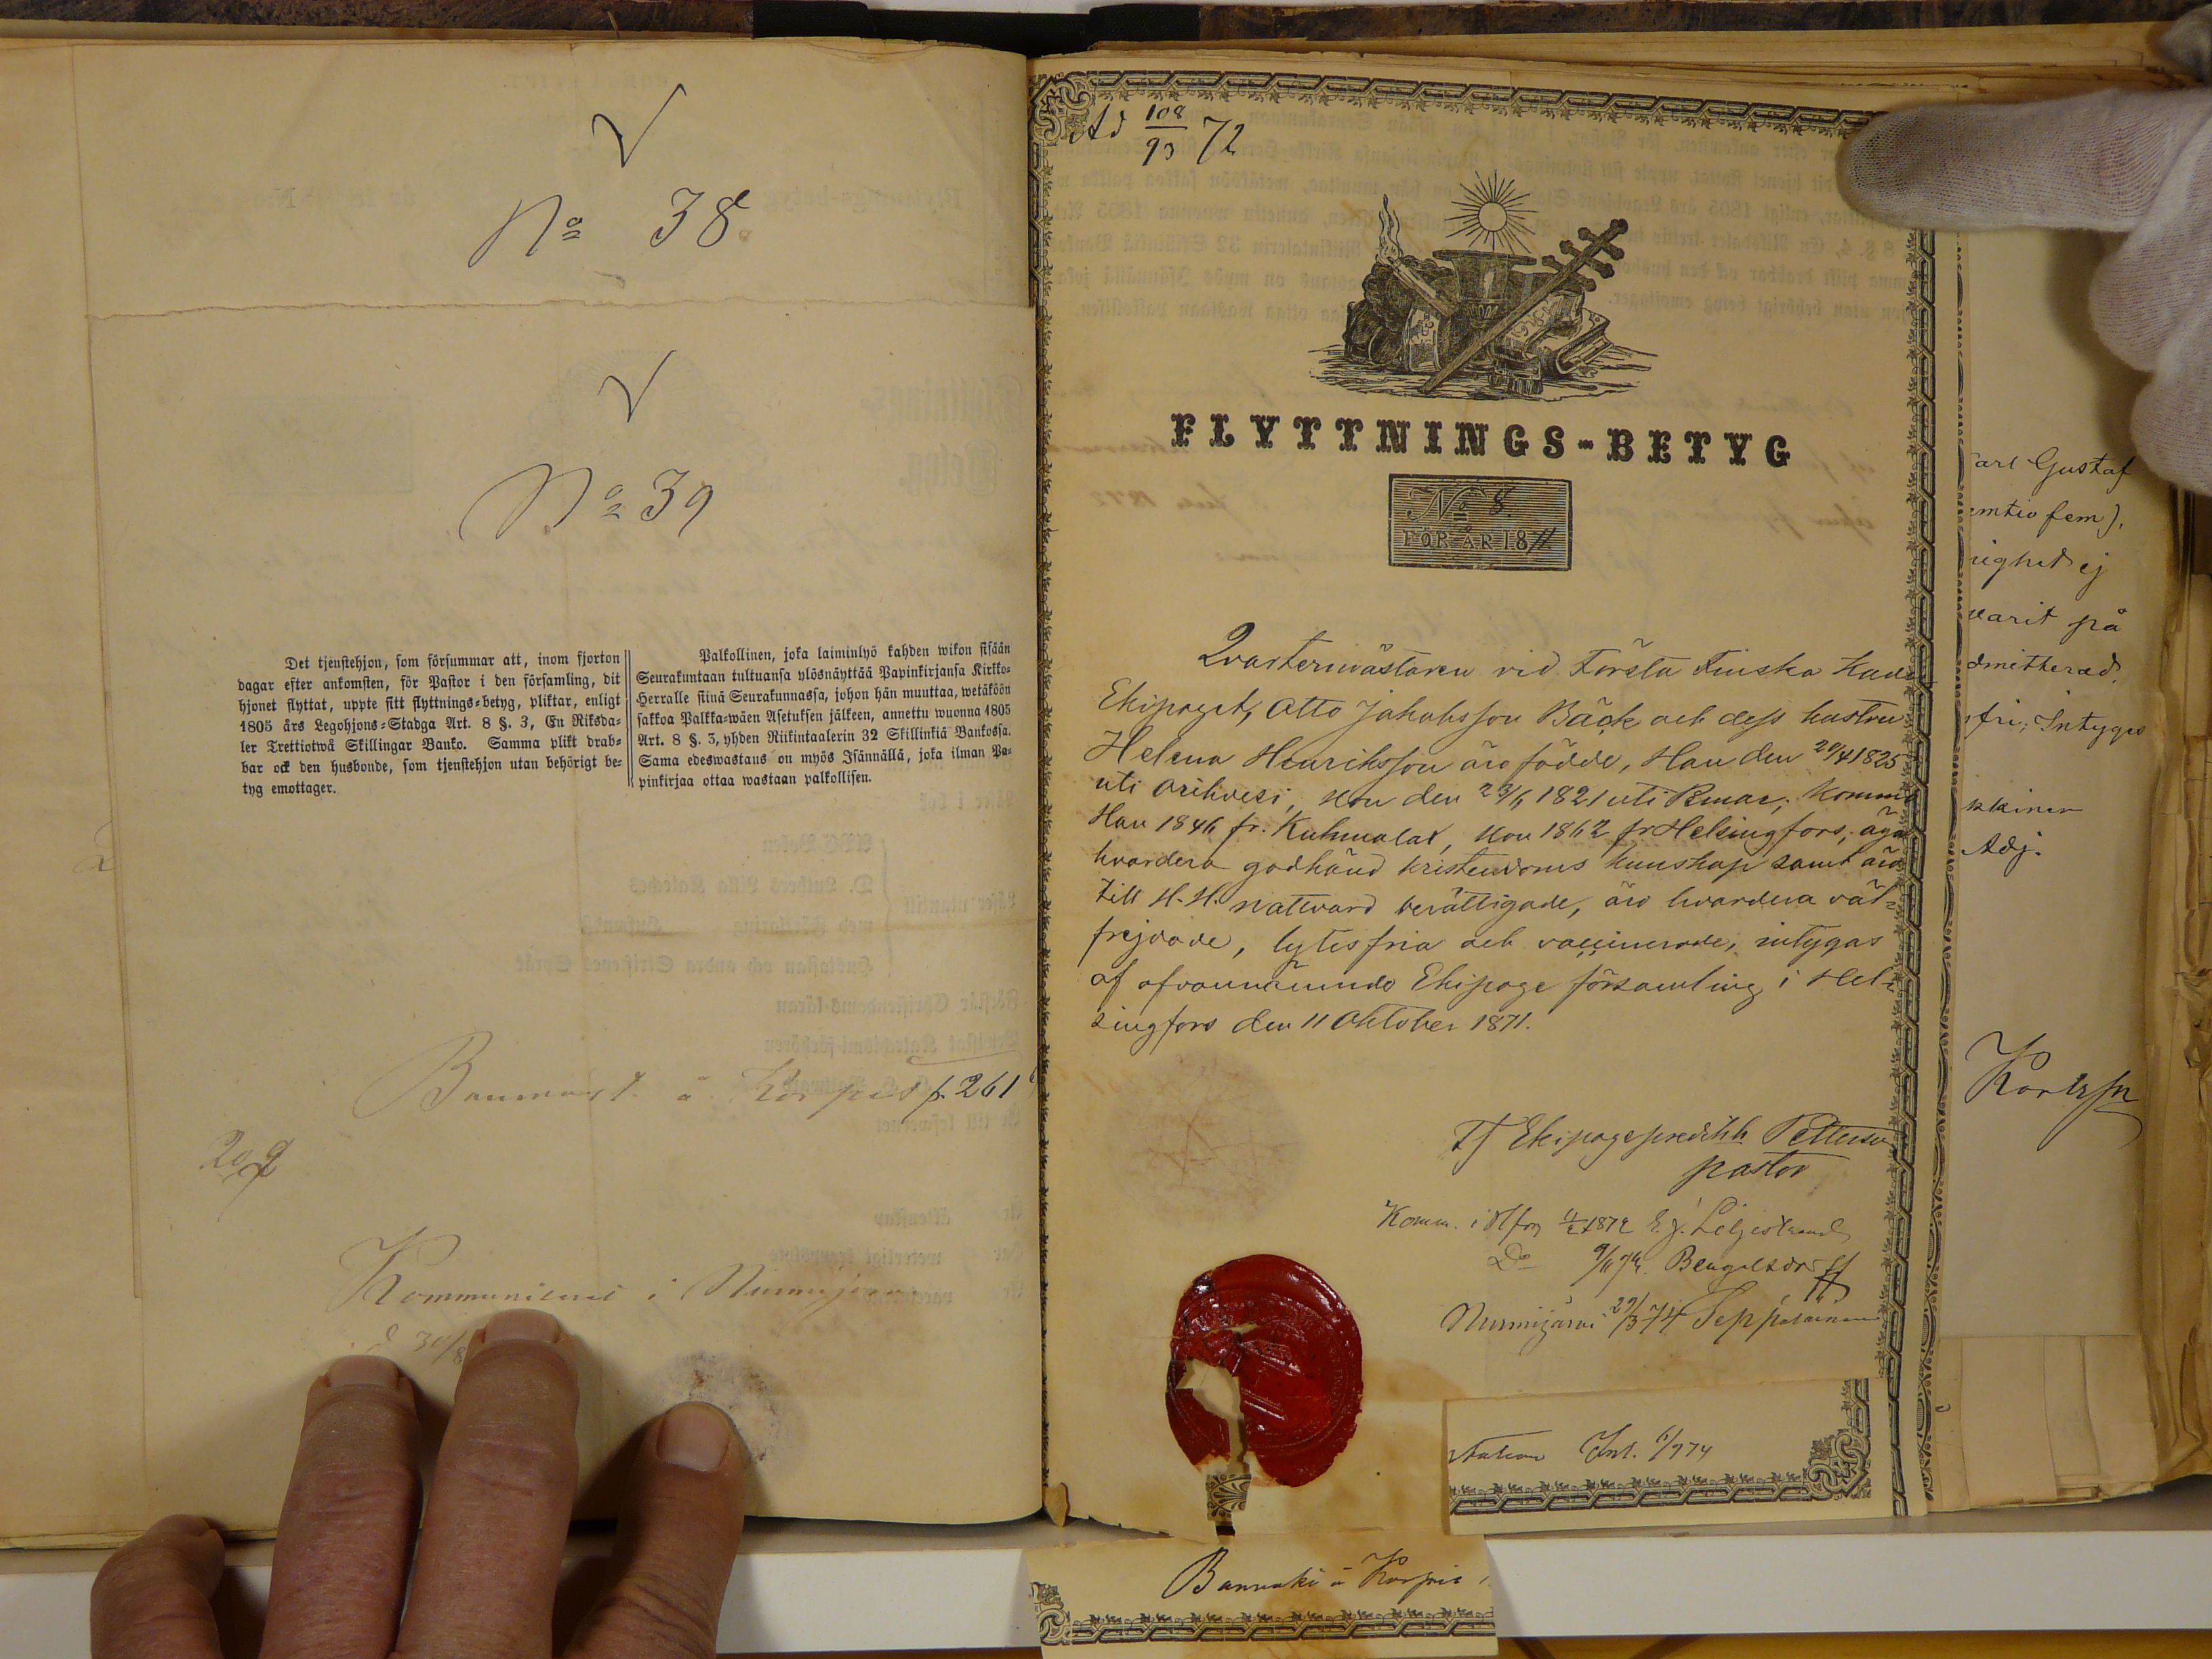 No 38.
No 39
Det tjenstehjon, som försummar att, inom fjorton
dagar efter ankomsten, för Pastor i den församling, dit
hjonet flyttat, uppte sitt flyttnings-betyg, pliktar, enligt
1805 års Legohjons-Stadga Art. 8 §. 3, En Riksda-
ler Trettiotwå Skillingar Banko. Samma plikt drab-
bar ock den husbonde, som tjenstehjon utan behörigt be-
tyg emottager.
Palkollinen, joka laiminlyö kahden wikon sisään
Seurakuntaan tultuansa ylösnäyttää Papinkirjansa Kirkko-
Herralle siinä Seurakunnassa, johon hän muuttaa, wetäköön
sakkoa Palkka-wäen Asetuksen jälkeen, annettu wuonna 1805
Art. 8 §. 3, yhden Riikintaalerin 32 Skillinkiä Bankossa.
Sama edeswastaus on myös Isännällä, joka ilman Pa-
pinkirjaa ottaa wastaan palkollisen.
å p. 261
Kommunicerat i Nurmijärvi
d 30/8
Ad 108/93 72
FLYTTNINGS-BETYG
No 8.
FÖR ÅR 1871
Qvartermästaren vid Första Finska
Ekipaget, Otto Jakobsson Bäck och dess hustru
Helena Henriksson äro födde, Han den 20/4 1825
uti Orihvesi, Hon den 23/6 1821 uti Pemar; komne
Han 1846 fr. Kuhmalat, Hon 1862 fr Helsingfors; äga
hvardera godkänd kristendoms kunskap samt äro
till H. H. nattvard berättigade, äro hvardera väl-
frejdade, lytesfria och vaccinerade, intygas
af ofvannämnde Ekipage församling i Hel-
singfors den 11 Oktober 1871.
Tf Ekipagepredikh Petterson
pastor
Komm. i Hfors 1872 E. J. Liljestrand
Do Bengelsdorff
Nurmijärvi 29/3 74
Bannoki å Korpis
arl Gustaf
emtio fem),
righet ej
varit på
dmitterad.
fri; Intygas
kkinen
Adj.